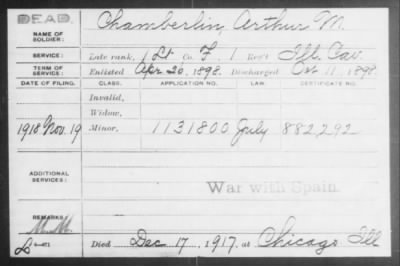 DEAD.
NAME OF SOLDIER: Chamberlin, Arthur M.
SERVICE: Late rank, 1 Lt Co. F, 1 Reg't Ill. Cav.
TERM OF SERVICE: Enlisted Apr 20, 1898. Discharged Oct 11, 1898.
DATE OF FILING. CLASS. APPLICATION NO. LAW. CERTIFICATE NO.
Invalid,
Widow,
1918 Nov. 19 Minor, 1131800 July 882,292
ADDITIONAL SERVICES:
War with Spain.
REMARKS:
M. M.
Died Dec 17, 1917, at Chicago Ill